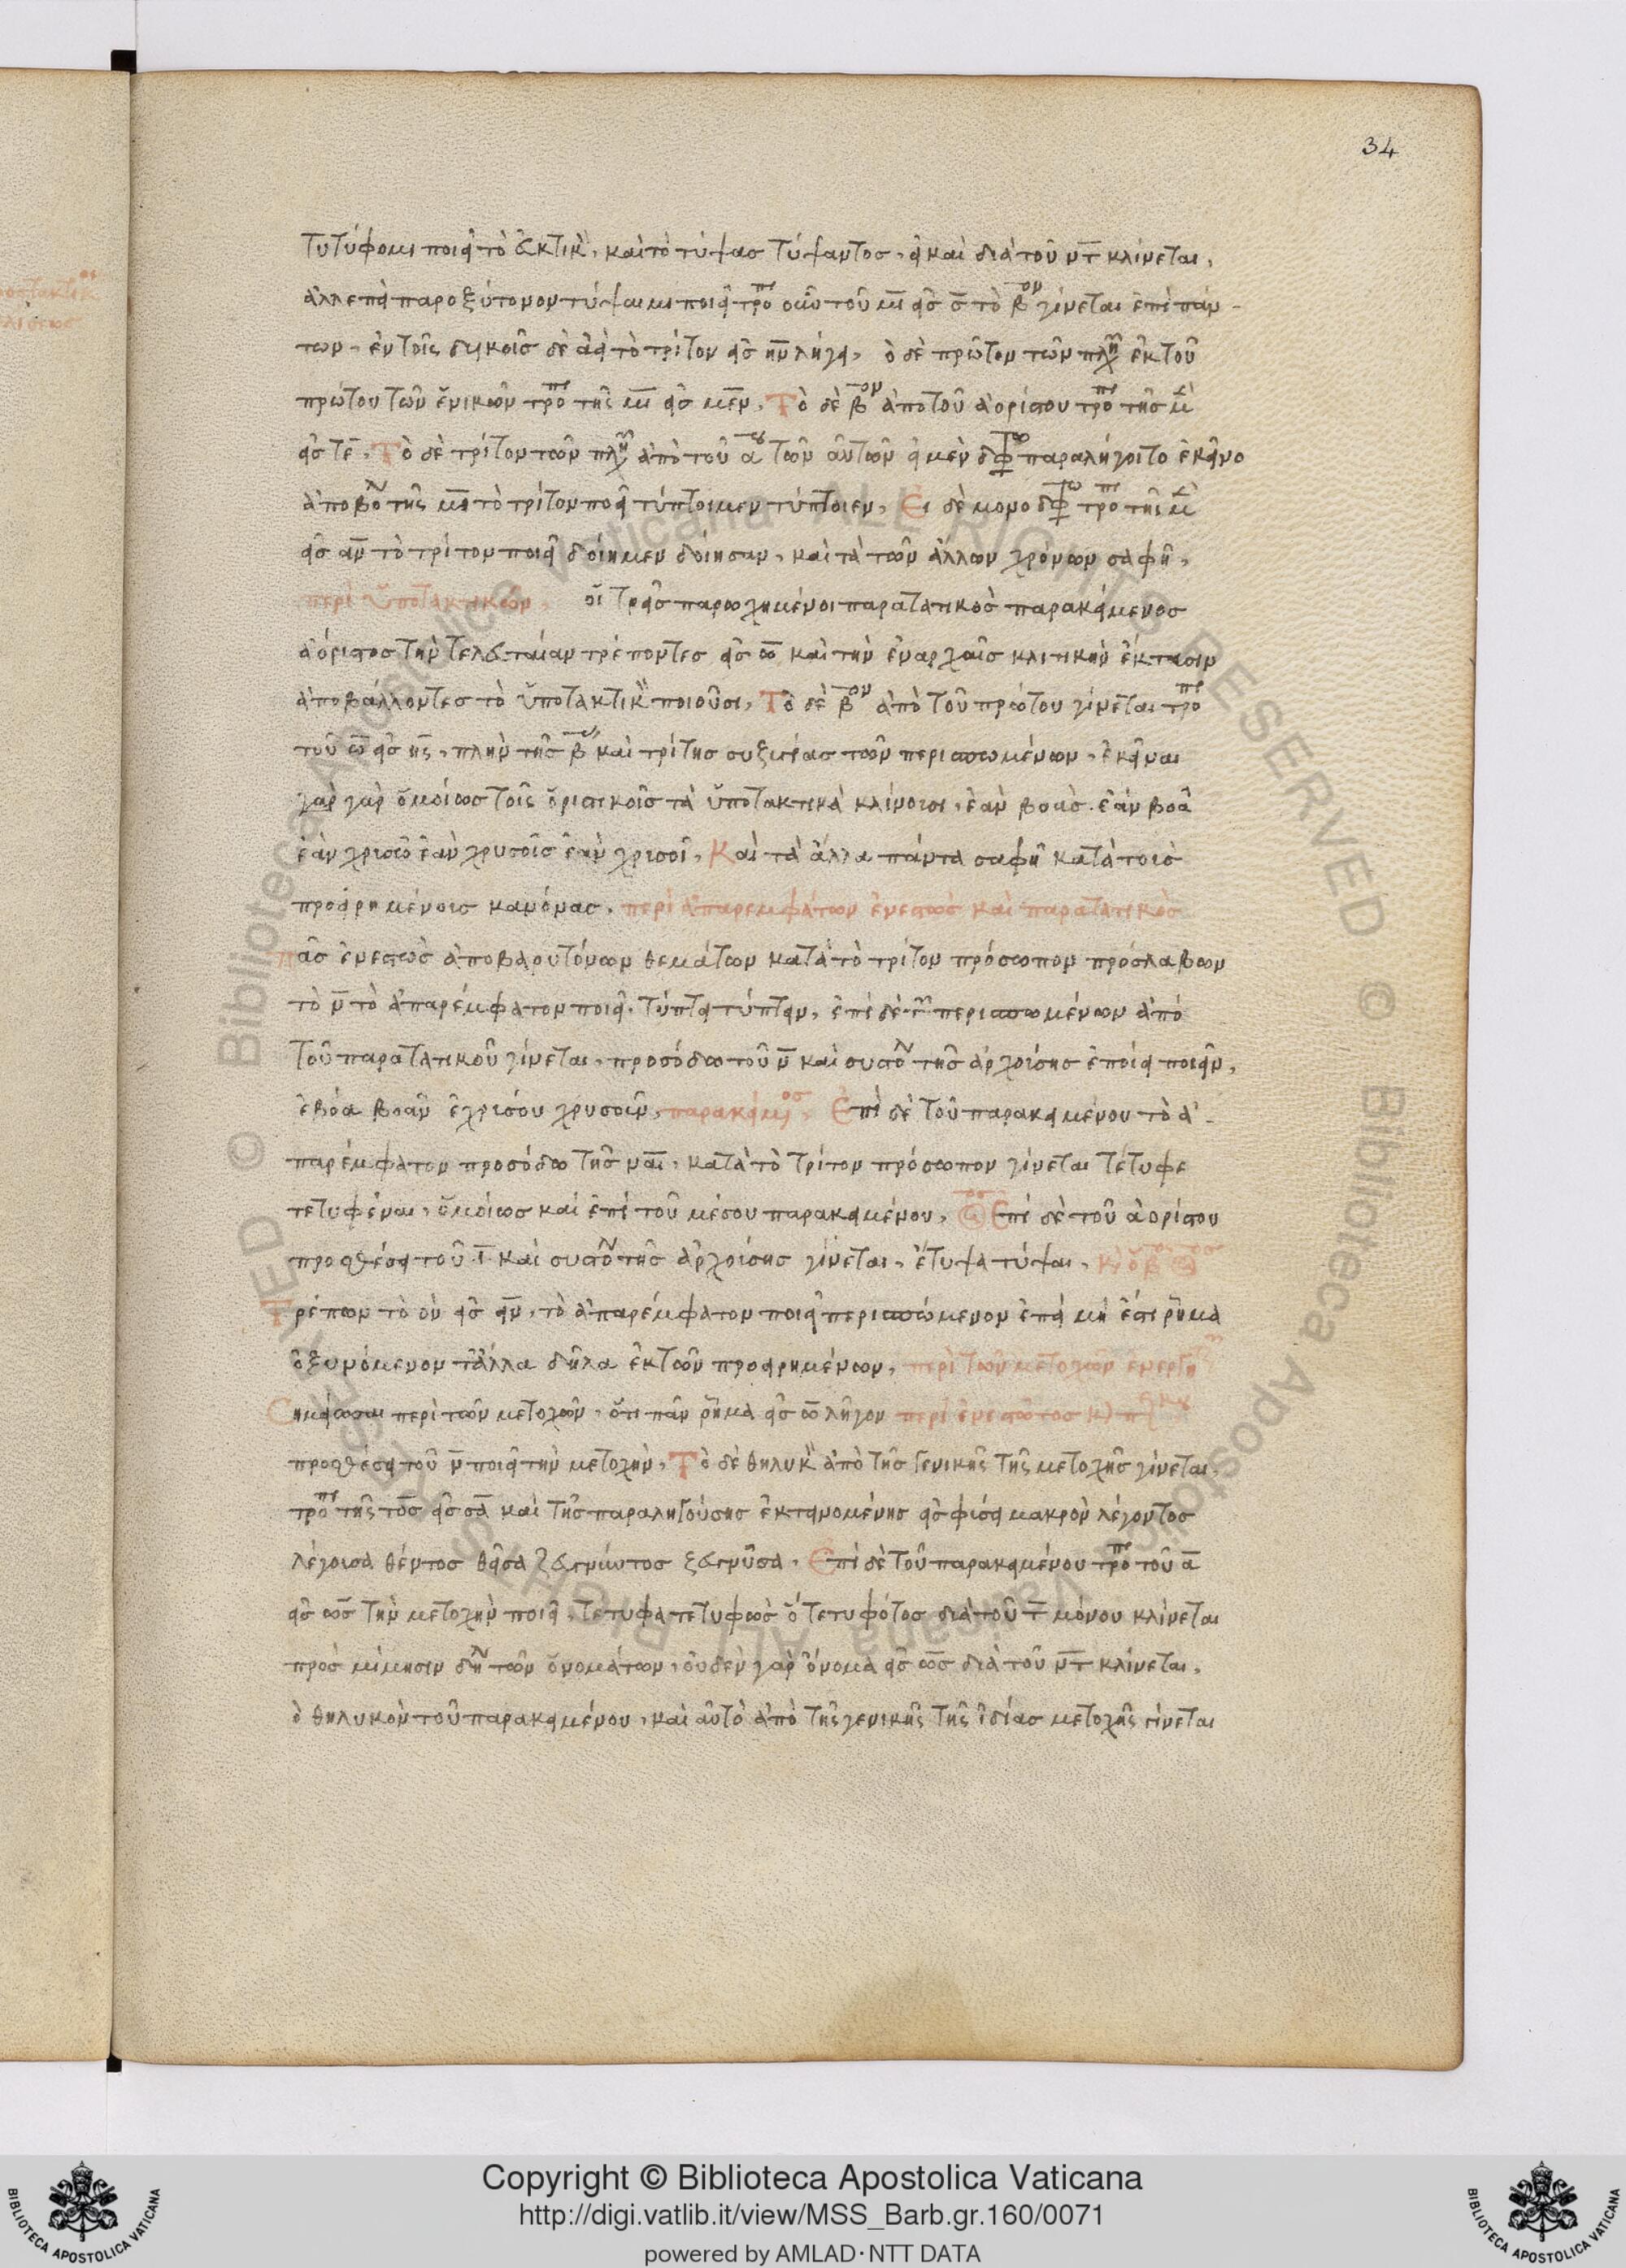 34
τυτύφοιμι ποιεῖ τὸ εὐκτικ̀, καὶ τὸ τύψας τύψαντος, εἰ καὶ διὰ τοῦ ν̅τ̅ κλίνεται,
ἀλλ ἐπεὶ παροξύτονον τύψαιμι ποιεῖ τρο͞π οὖν τοῦ μ̅ι̅ εἰς ς̅ τὸ β̅ον γίνεται ἐπὶ πάν-
των. ἐν τοῖς δυικοῖς δὲ ἀεὶ τὸ τρίτον εἰς η̅ν̅ λήγει, ὁ δὲ πρῶτον τῶν πλη ἐκ τοῦ
πρώτου τῶν ἑνικῶν τρο͞π τῆς μ̅ι̅ εἰς μ̅ε̅ν̅, Τὸ δὲ β̅ον ἀπὸ τοῦ ἀορίστου τρο͞π τῆς μὲ
εἰς τ̅ε̅, Τὸ δὲ τρίτον τῶν πλη ἀπὸ τοῦ α̅ου τῶν αὐτῶν εἰ μὲν δφω παραλήγοιτο ἐκεῖνο
ἀποβο τῆς μ̅ε̅ τὸ τρίτον ποεῖ τύπτοιμεν τύπτοιεν, Εἰ δὲ μονοδφω τρο͞π τῆς μὲ
εἰς α̅ν̅ τὸ τρίτον ποιεῖ δοίημεν δοίησαν, καὶ τὰ τῶν ἄλλων χρόνων σαφῆ,
περὶ ὑποτακτικῶν, οἱ τρεῖς παρωχημένοι παρατατικὸς παρακείμενος
ἀόριστος τὴν τελευταίαν τρέποντες εἰς ω̅ καὶ τὴν ἐν ἀρχαῖς κλιτικὴν ἔκτασιν
ἀποβάλλοντες τὸ ὑποτακτικ̀ ποιοῦσι, Τὸ δὲ β̅ον ἀπὸ τοῦ πρώτου γίνεται τρο͞π
τοῦ ω̅ εἰς ης̅, πλὴν τῆς β̅ας καὶ τρίτης συζυγίας τῶν περισπωμένων, ἐκεῖναι
γὰρ γὰρ ὁμοίως τοῖς ὁριστικοῖς τὰ ὑποτακτικὰ κλίνουσι, ἐὰν βοᾶς. ἐὰν βοᾶ
ἐὰν χρυσῶ ἐὰν χρυσοῖς ἐὰν χρυσοῖ, Καὶ τὰ ἄλλα πάντα σαφῆ κατὰ τοὺς
προειρημένους κανόνας, περὶ ἀπαρεμφάτων ἐνεστὼς καὶ παρατατικὸς
πᾶς ἐνεστὼς ἀπο βαρυτόνων θεμάτων κατὰ τὸ τρίτον πρόσωπον πρόσλαβων
τὸ ν̅ τὸ ἀπαρέμφατον ποιεῖ, τύπτει τύπτειν, ἐπὶ δὲ τῶν περισπωμένων ἀπὸ
τοῦ παρατατικοῦ γίνεται, προσόδω τοῦ ν̅ καὶ συστο τῆς ἀρχούσης ἐποίει ποιεῖν,
ἐβόα βοᾶν ἐχρύσου χρυσοῦν, παρακείμος, Ἐπὶ δὲ τοῦ παρακειμένου τὸ ἀ-
παρέμφατον προσόδω τῆς ναι̅, κατὰ τὸ τρίτον πρόσωπον γίνεται τέτυφε
τετυφέναι, ὁμοίως καὶ ἐπὶ τοῦ μέσου παρακειμένου, Ἐπὶ δὲ τοῦ ἀορίστου
προσθέσει τοῦ ι̅ καὶ συστο τῆς ἀρχούσης γίνεται, ἔτυψα τύψαι,
Τρέπων τὸ ον εἰς ειν̅, τὸ ἀπαρέμφατον ποιεῖ περισπώμενον ἐπεὶ μὴ ἐστι ῥῆμα
ὀξυνόμενον τἄλλα δῆλα ἐκ τῶν προειρημένων, περὶ τῶν μετοχῶν ἐνεργη
Σημείωσαι περὶ τῶν μετοχῶν, ὅτι πᾶν ῥῆμα εἰς ω̅ λῆγον περὶ ἐνεστῶτος κ̀
προσθέσει τοῦ ν̅ ποιεῖ τὴν μετοχὴν, Τὸ δὲ θηλυκ̀ ἀπὸ τῆς γενικῆς τῆς μετοχῆς γίνεται,
τρο͞π τῆς τος̅ εἰς σα̅ καὶ τῆς παραληγούσης ἐκτεινομένης εἰς φύσει μακρὸν λέγοντος
λέγουσα θέντος θεῖσα ζευγνύντος ζευγνῦσα, Ἐπὶ δὲ τοῦ παρακειμένου τρο͞π τοῦ α̅
εἰς ως̅ τὴν μετοχὴν ποιεῖ, τετυφα τετυφὼς ὁ τετυφότος διὰ τοῦ τ̅ μόνου κλίνεται
προς μίμησιν δη τῶν ὀνομάτων, οὐδὲν γὰρ ὄνομα εἰς ως̅ διὰ τοῦ ν̅τ̅ κλίνεται,
ὁ θηλυκὸν τοῦ παρακειμένου, καὶ αὐτὸ ἀπὸ τῆς γενικῆς τῆς ἰδίας μετοχῆς γίνεται
Copyright © Biblioteca Apostolica Vaticana
http://digi.vatlib.it/view/MSS_Barb.gr.160/0071
powered by AMLAD·NTT DATA
BIBLIOTECA APOSTOLICA VATICANA
BIBLIOTECA APOSTOLICA VATICANA